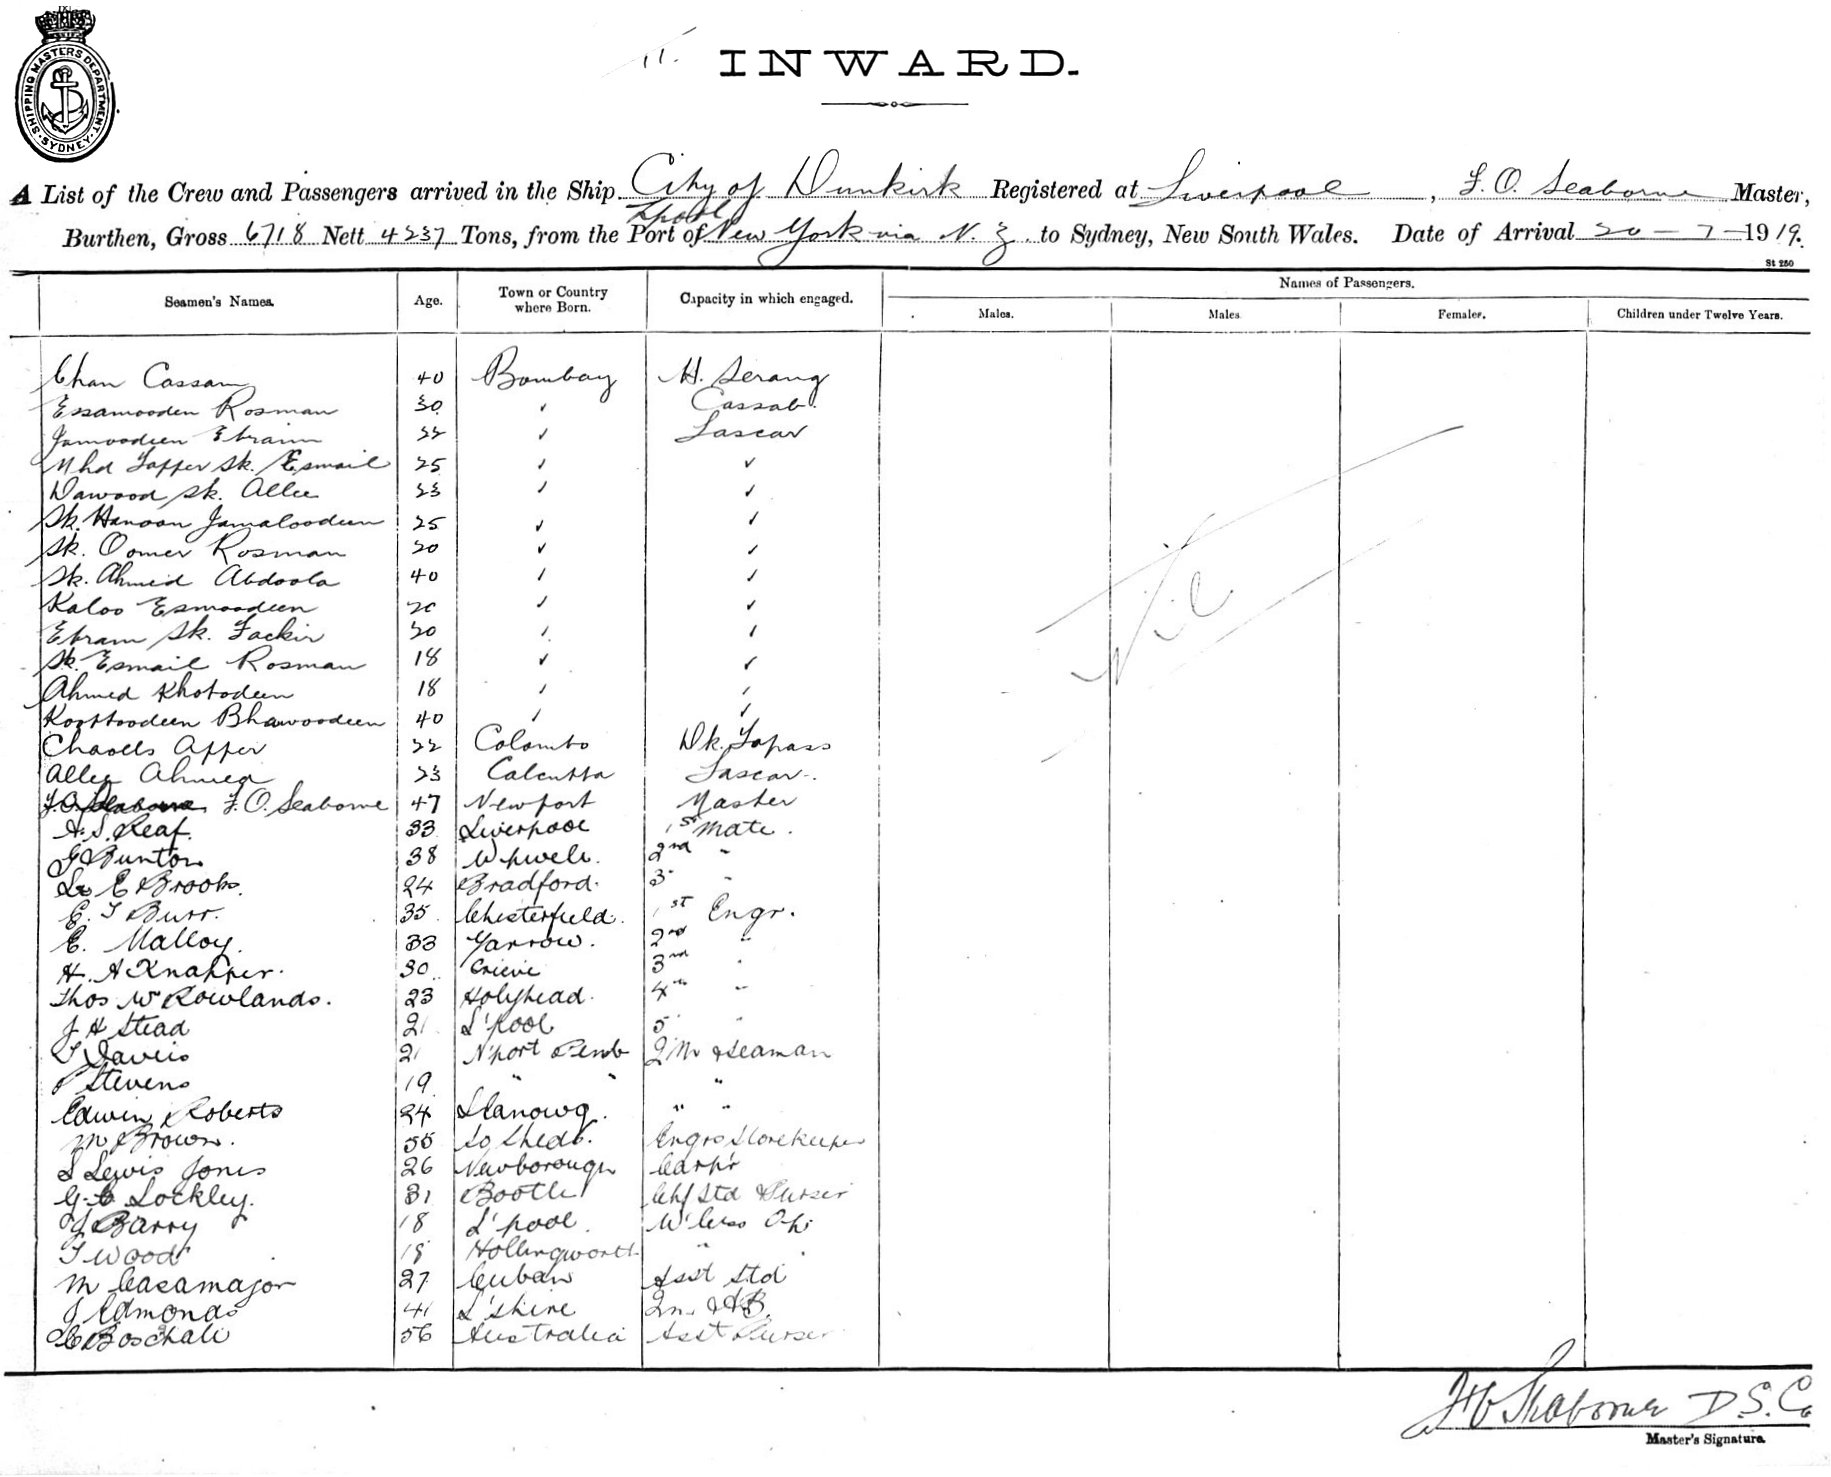 SHIPPING MASTERS DEPARTMENT. SYDNEY
INWARD.
A List of the Crew and Passengers arrived in the Ship City of Dunkirk Registered at Liverpool, F. O. Seaborne Master,
L'pool
Burthen, Gross 6718 Nett 4237 Tons, from the Port of New York via N. Z. to Sydney, New South Wales. Date of Arrival 20 - 7 - 1919.
St 250
Seamen's Names. Age. Town or Country where Born. Capacity in which engaged. Names of Passengers.
Males. Males. Females. Children under Twelve Years.
Chan Cassam 40 Bombay H. Serang
Essamooden Rosman 30 Cassab.
Jamoodeen Ebraim 22 Lascar
Mhd Saffer Sk. Esmail 25
Dawood Sk. Allee 23
Sk. Hanoon Jamaloodeen 25
Sk. Oomer Rosman 20
Sk. Ahmed Abdoola 40
Kaloo Esmoodeen 20
Ebram Sk. Fackir 20
Sk. Esmail Rosman 18
Ahmed Khotodeen 18
Koottoodeen Bhawoodeen 40
Apper 22 Colombo Dk. Topass
Allee Ahmed 23 Calcutta Lascar.
F. O. Seaborne F. O. Seaborne 47 Newport Master
A. S. Leaf. 33 Liverpool 1st Mate.
G Bunton 38 2nd "
E Brooks. 24 Bradford. 3 "
E. T Burr. 35 Chesterfield. 1st Engr.
E. Malloy. 33 Yarrow. 2nd "
H. A Knapper. 30 Crieve 3rd "
Thos W Rowlands. 23 Holyhead. 4th "
J H Stead 21 L'pool 5 "
T Daveis 21 N'port Pemb Q M & Seaman
P Stevens 19 " " "
Edwin Roberts 24 Llanowg. " "
M Brown. 55 So Sheds. Engrs Storekeeper
S Lewis Jones 26 Newborough Carp'r
G. C Lockley. 31 Bootle Chf Std & Purser
J Barry 18 L'pool. W'less Op.
T Wood 18 Hollingworth "
M Casamajor 27 Cuban Asst Std
J Edmonds 41 L'shire Qm. & AB.
C Boschali 56 Australia Asst Purser
Nil
F O Seaborne D. S. C.
Master's Signature.